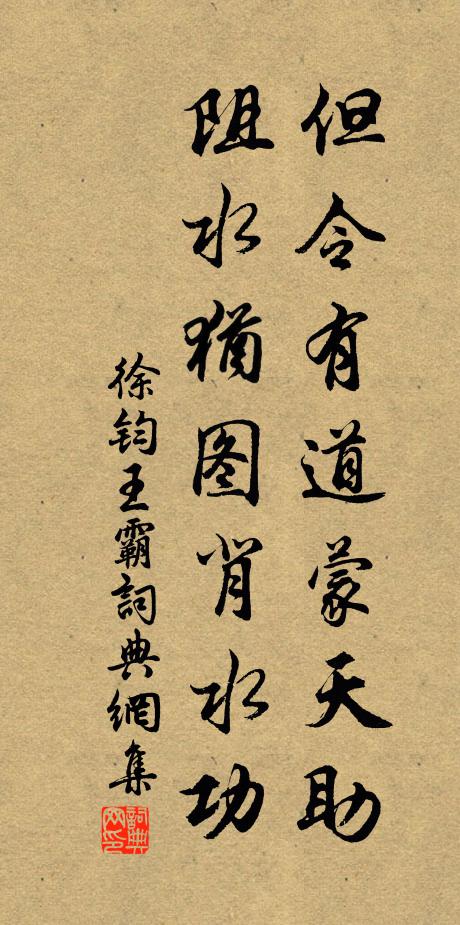 但令有道蒙天助
阻水猶图背水功
徐钧王霸詞典網集
詞典网印